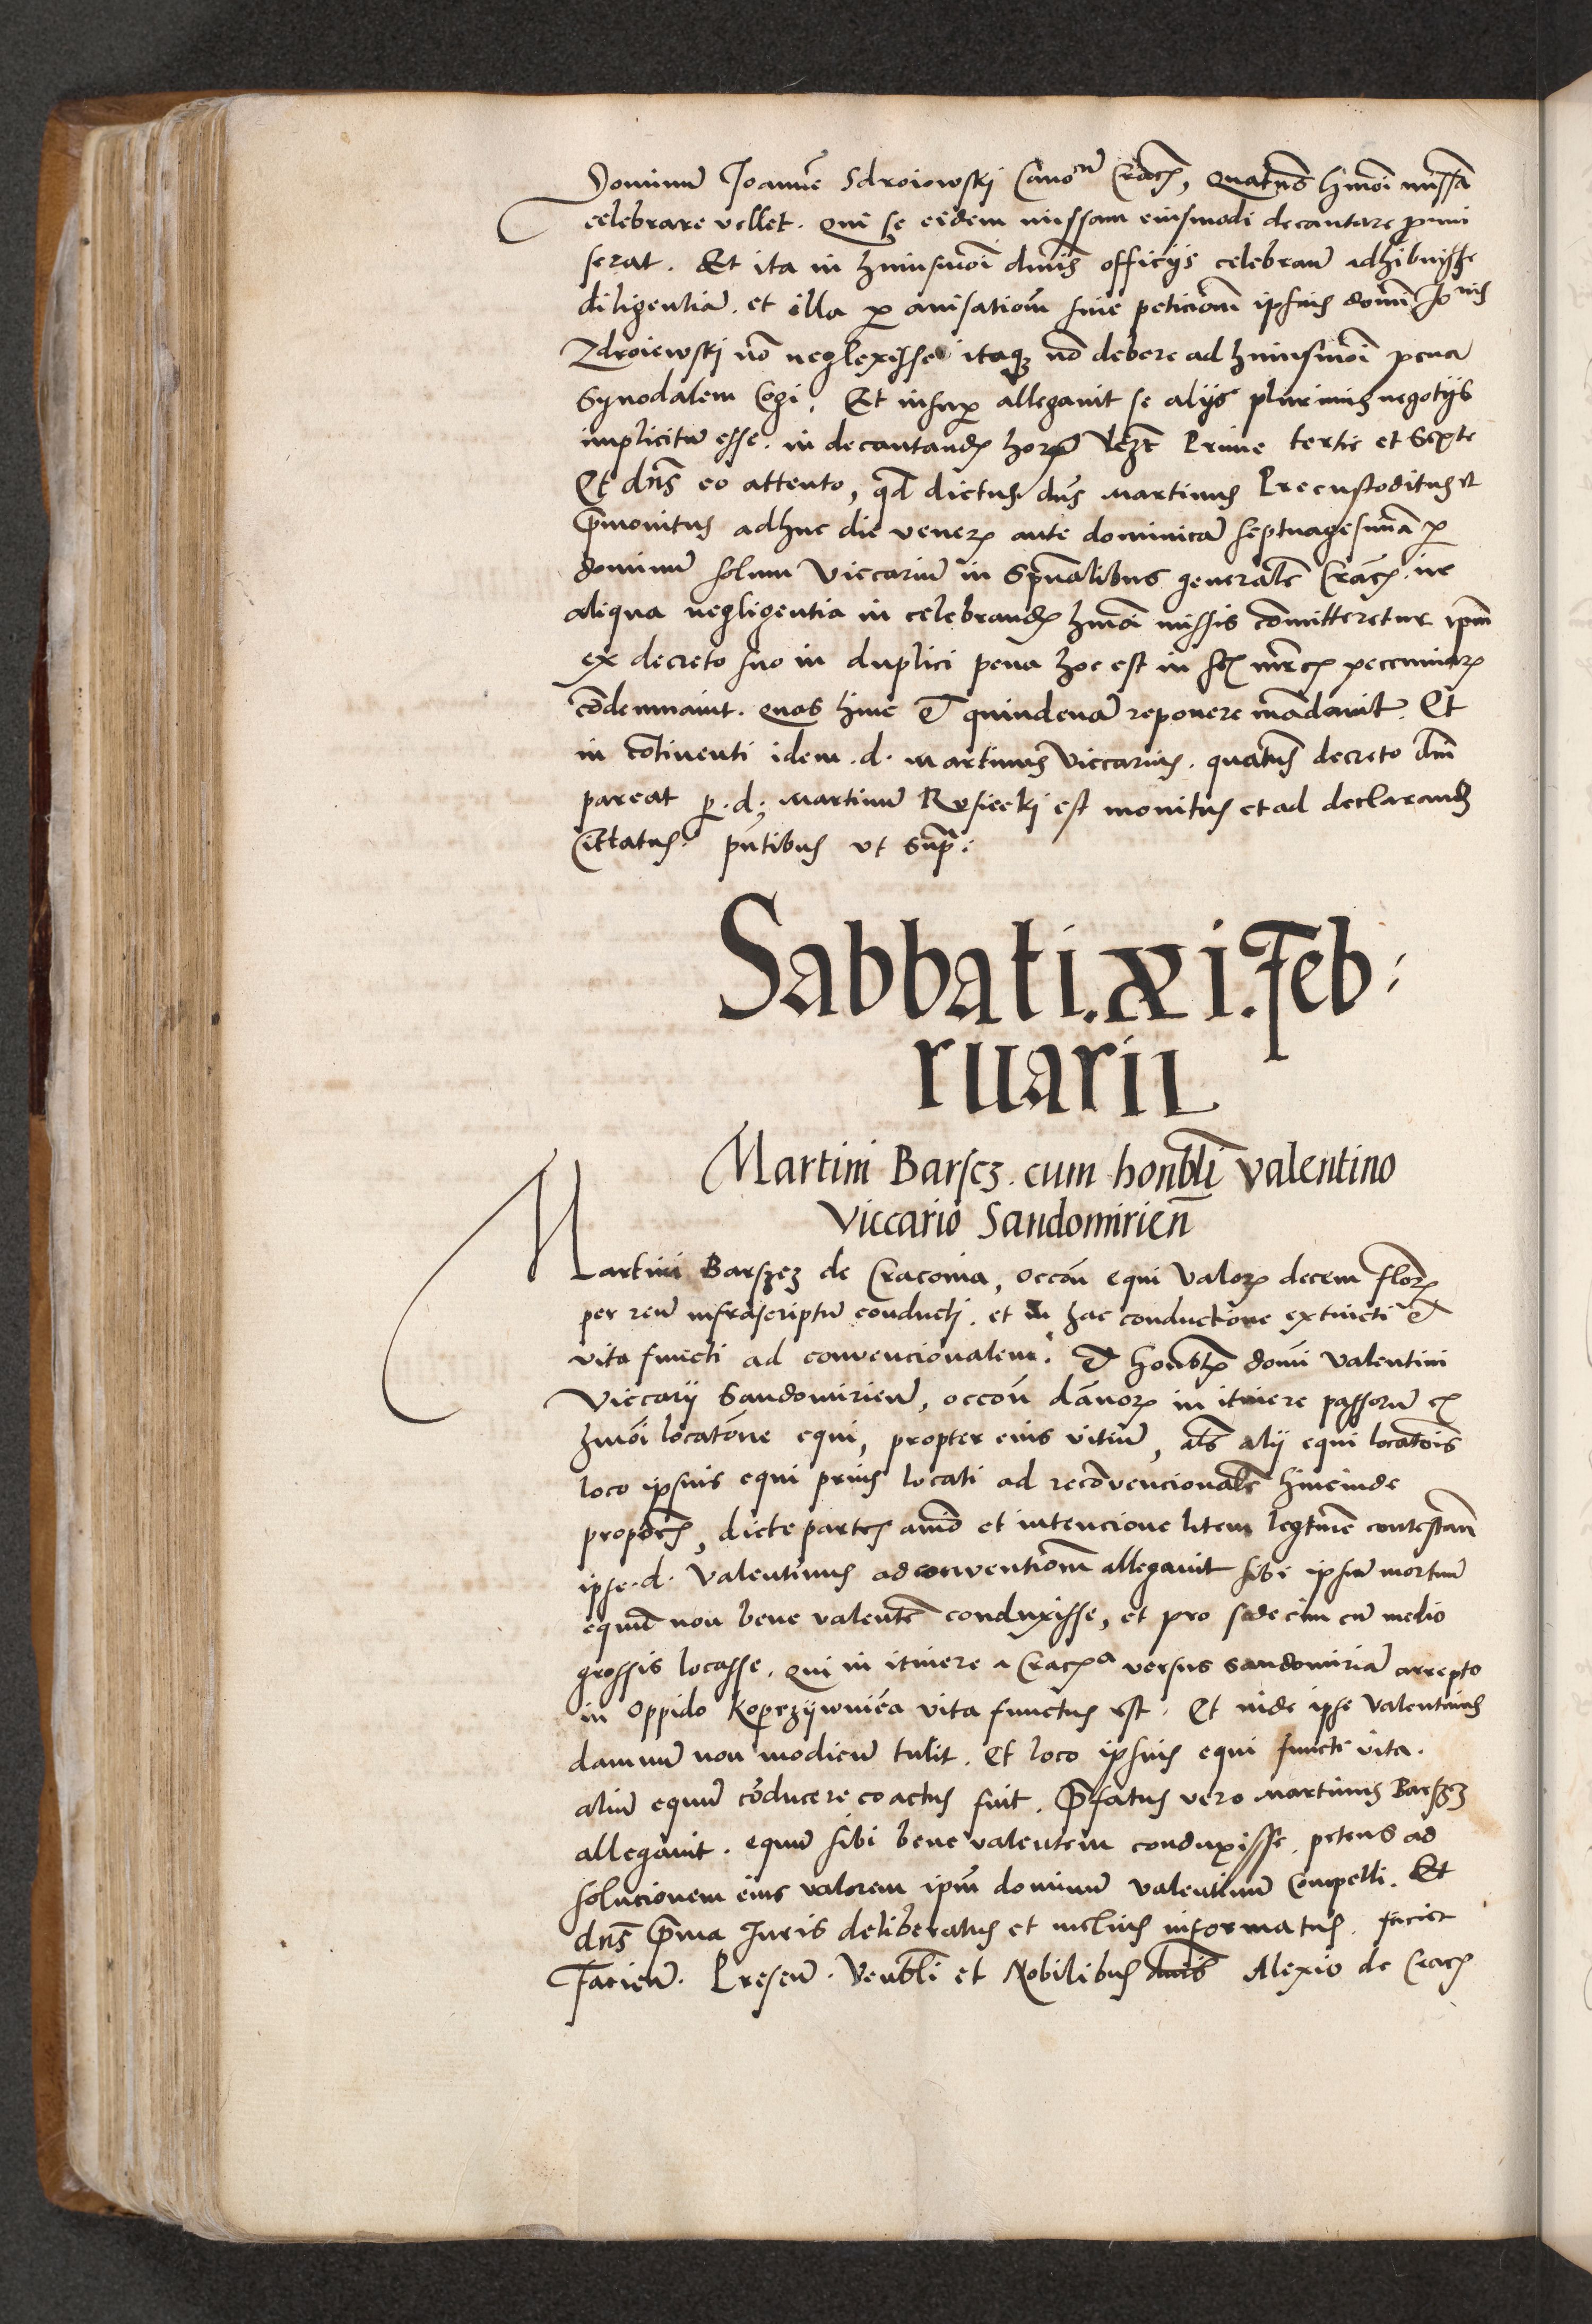 Dominum Joannē Sdroiowskj Canocū Cracꝭ, quatn̄s hm̄oi missā
celebrare vellet. qui se eidem missam eiusmodi decantare promi
serat. Et ita in huiusmōi diuīs officijs celebran̄ adhibuisse
diligentiā. et illa per auisationē siue peticionē ipsius domī Joānis
Zdroiewskj nō neglexisse itaqꝫ nō debere ad huiusmōi pena
Synodalem Cogi. Et insuꝑ allegauit se alijs plurimis negotijs
implicitū esse. in decantandꝭ horis vꝫ Prime tertie et Sexte
Et dn̄s eo attento, qd dictus dn̄s Martinus Precustoditus et
p̄monitus adhuc die venerꝭ ante dominicā septuagesimā ꝑ
dominū solum Viccariū in Sp̄ualibus generalē Cracꝭ. ne
aliqua negligentia in celebrandꝭ hm̄oi missis cōmitteretur ipm̄
ex decreto suo in duplici pena hoc est in sex mrcꝭ pecuniarꝭ
cōdemnauit. quas hinc ad quindenā reponere mādauit. Et
in cōtinenti idem .d. Martinus Viccarius. quatn̄s decreto dn̄i
pareat ꝑ .d. Martinū Rusieckj est monitus et ad declarandꝭ
Cittatus. pn̄tibus vt Supᵃ.
Sabbati .xi. Feb
ruarii
Martini Barscz. cum honbli Valentino
Viccario Sandomirien̄
Martini Barszcz de Cracouia, occōn equi valorꝭ decem florꝭ
per reū infrascriptū conducti. et in hac conductione extincti et
vita functi ad conuencionalem. et honblꝭ domi Valentini
Viccarij Sandomirien̄, occōn dānorꝭ in itinere passorū ex
hm̄oi locatōne equi, propter eius vitiū, als alij equi locatōis
loco ipsius equi prius locati ad recōuencionalē hincinde
propōitꝭ, dicte partes aīo et intencione litem legitīe contestan̄
ipse .d. Valentinus ad conuentionē allegauit sibi ipsum mortuū
equū non bene valentē conduxisse, et pro sedecim cū medio
grossis locasse. qui in itinere a Cracꝭᵃ versus Sandomiriā arrepto
in Oppido Koprzijwnica vita functus est. Et inde ipse Valentinus
damnū non modicū tulit. Et loco ipsius equi functi vita.
aliū equū cōducere coactus fuit. P̄fatus vero Martinus Barszcz
allegauit. equū sibi bene valentem conduxisse. petens ad
solucionem eius valorem ipm̄ dominū Valentinū Compelli. Et
dn̄s p̄ma Juris deliberatus et melius informatus. faciet
Facien̄. Presen̄. Venbli et Nobilibus dn̄is Alexio de Cracꝭ